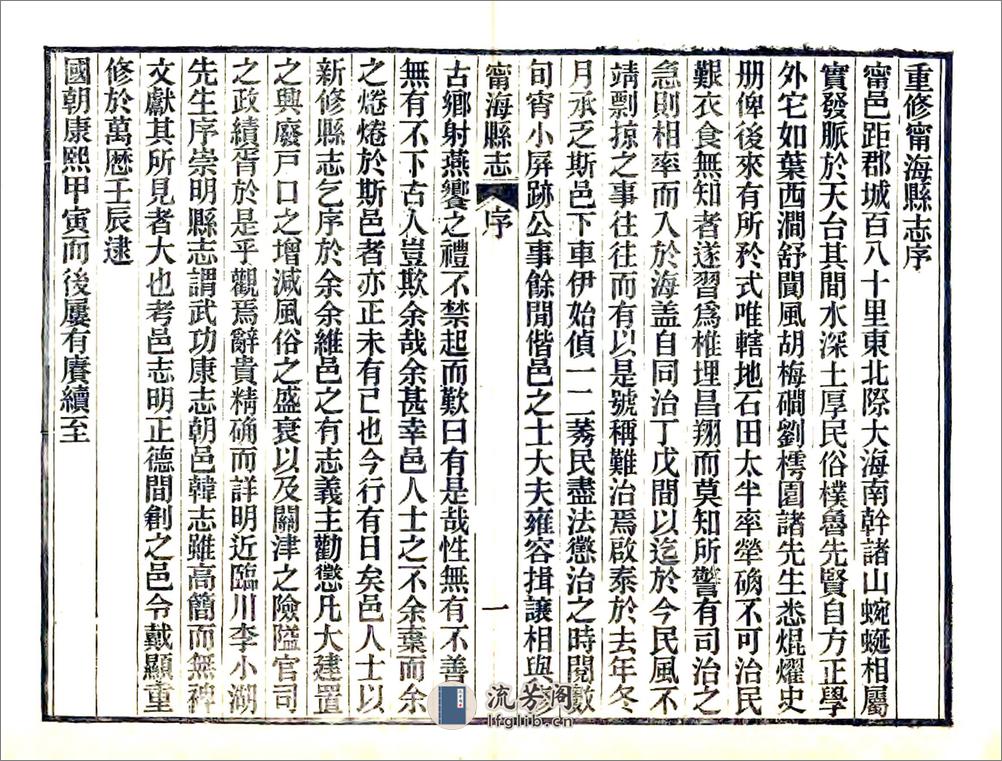 重修甯海縣志序
甯邑距郡城百八十里東北際大海南幹諸山蜿蜒相屬
實發脈於天台其間水深土厚民俗樸魯先賢自方正學
外它如葉西澗舒閬風胡梅磵劉樗園諸先生悉焜燿史
册俾後來有所矜式唯轄地石田太半率犖确不可治民
艱衣食無知者遂習爲椎埋昌翔而莫知所警有司治之
急則相率而入於海盖自同治丁戊間以迄於今民風不
靖剽掠之事往往而有以是號稱難治焉啟泰於去年冬
月承乏斯邑下車伊始偵一二莠民盡法懲治之時閱數
旬宵小屏跡公事餘閒偕邑之士大夫雍容揖讓相與
甯海縣志 序 一
古鄉射燕饗之禮不禁起而歎曰有是哉性無有不善
無有不下古人豈欺余哉余甚幸邑人士之不余棄而余
之惓惓於斯邑者亦正未有已也今行有日矣邑人士以
新修縣志乞序於余余維邑之有志義主勸懲凡大建置
之興廢戸口之增減風俗之盛衰以及關津之險隘官司
之政績胥於是乎觀焉辭貴精确而詳明近臨川李小湖
先生序崇明縣志謂武功康志朝邑韓志雖高簡而無裨
文獻其所見者大也考邑志明正德間創之邑令戴顯重
修於萬厯壬辰逮
國朝康熙甲寅而後屢有賡續至
流芳閣
lfglib.cn